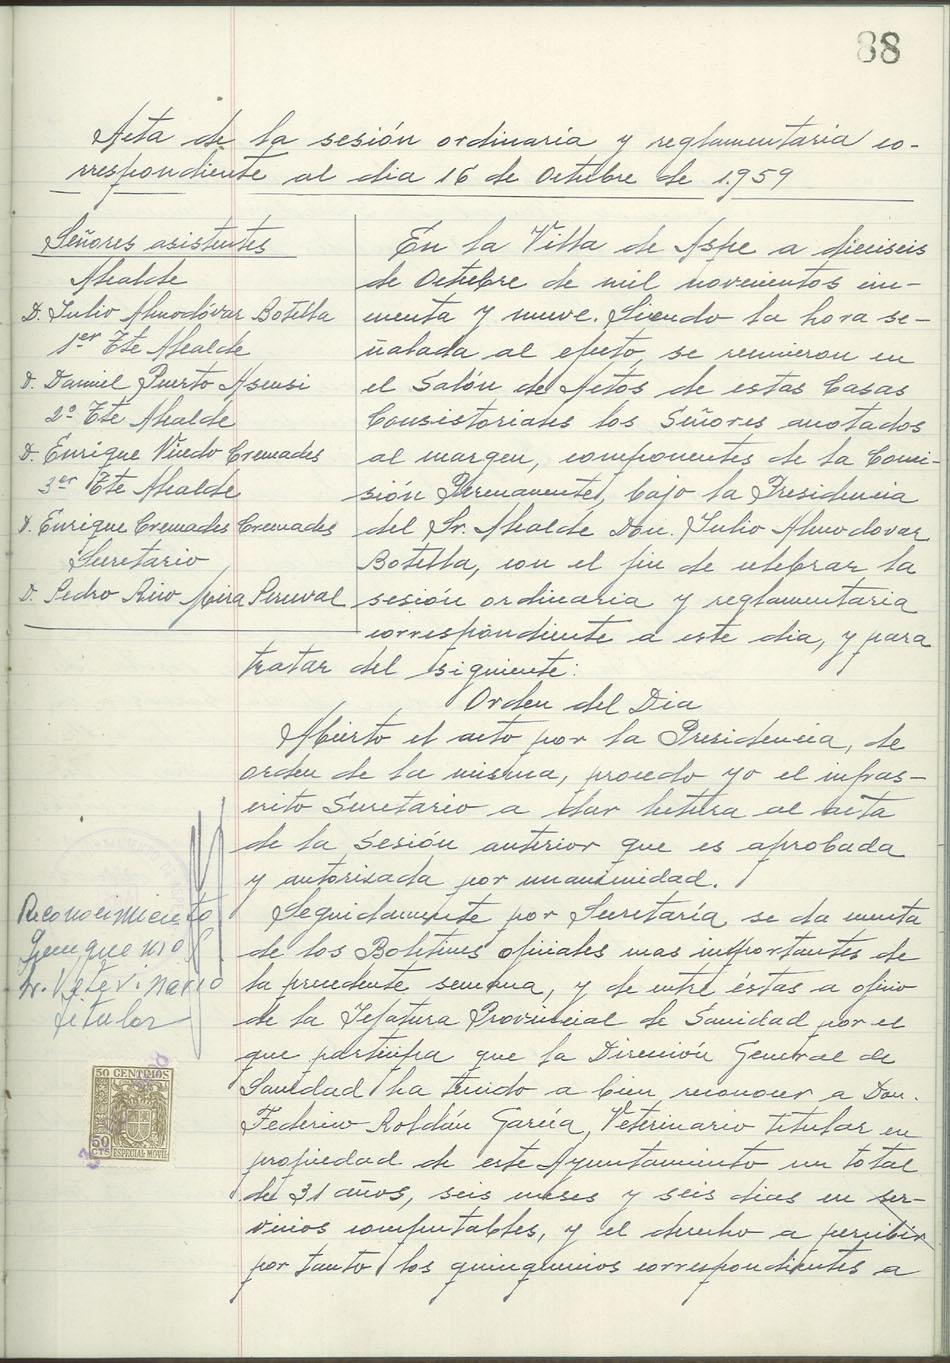 88
Acta de la sesión ordinaria y reglamentaria co-
rrespondiente al dia 16 de Octubre de 1.959
Señores asistentes
Alcalde
D. Julio Almodóvar Botella
1er Tte Alcalde
D. Daniel Puerto Asensi
2º Tte Alcalde
D. Enrique Viñedo Cremades
3er Tte Alcalde
D. Enrique Cremades Cremades
Secretario
D. Pedro Rico Mira Perceval
En la Villa de Aspe a dieciseis
de Octubre de mil novecientos cin-
cuenta y nueve. Siendo la hora se-
ñalada al efecto, se reunieron en
el Salón de Actos de estas Casas
Consistoriales los Señores anotados
al margen, componentes de la Comi-
sión Permanente, bajo la Presidencia
del Sr. Alcalde Don. Julio Almodovar
Botella, con el fin de celebrar la
sesión ordinaria y reglamentaria
correspondiente a este dia, y para
tratar del siguiente:
Orden del Dia
Abierto el acto por la Presidencia, de
orden de la misma, procedo yo el infras-
crito Secretario a dar lectura al acta
de la sesión anterior que es aprobada
y autorizada por unanimidad.
Reconocimiento
quinquenio
Sr. Veterinario
titular
Seguidamente por Secretaría se da cuenta
de los Boletines oficiales mas importantes de
la precedente semana, y de entre éstas a oficio
de la Jefatura Provincial de Sanidad por el
que participa que la Dirección General de
Sanidad ha tenido a bien reconocer a Don.
Federico Roldán García, Veterinario titular en
propiedad de este Ayuntamiento un total
de 31 años, seis meses y seis dias en ser-
vicios computables, y el derecho a percibir
por tanto los quinquenios correspondientes a
50 CENTIMOS
50
CTS
ESPECIAL MOVIL